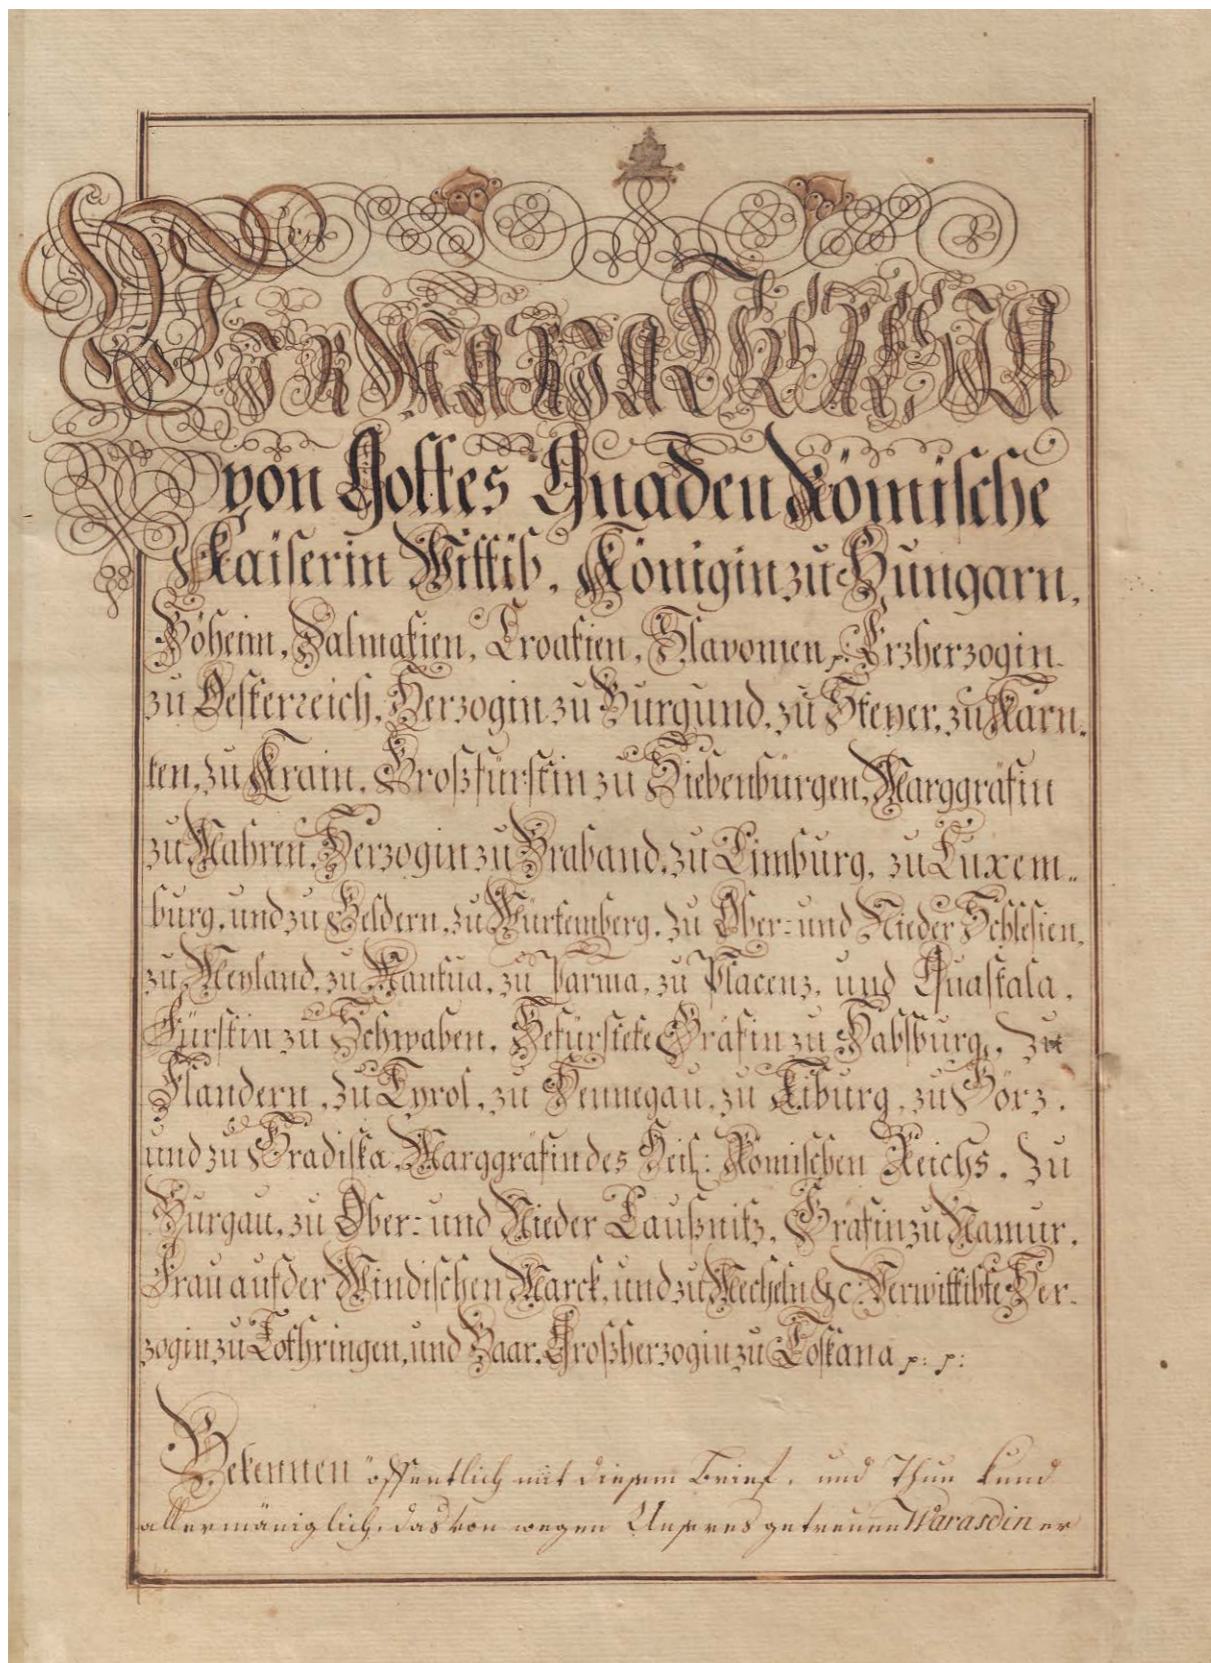 Wir Maria Theresia
von Gottes Gnaden Römische
Kaiserin Wittib, Königin zu Hungarn,
Böheim, Dalmatien, Croatien, Slavonien, Erzherzogin
zu Oesterreich, Herzogin zu Burgund, zu Steyer, zu Kärn-
ten, zu Krain, Großfürstin zu Siebenbürgen, Marggräfin
zu Mähren, Herzogin zu Braband, zu Limburg, zu Luxem-
burg, und zu Geldern, zu Würtemberg, zu Ober- und Nieder Schlesien,
zu Meyland, zu Mantua, zu Parma, zu Placenz, und Quastala,
Fürstin zu Schwaben, Gefürstete Gräfin zu Habsburg, zu
Flandern, zu Tyrol, zu Hennegau, zu Kiburg, zu Görz,
und zu Gradiska, Marggräfin des Heil: Römischen Reichs, zu
Burgau, zu Ober- und Nieder Laußnitz, Gräfin zu Namur,
Frau auf der Windischen Marck, und zu Mecheln &c: Verwittibte Her-
zogin zu Lothringen, und Baar, Großherzogin zu Toskana p: p:
Bekennen öffentlich mit diesem Brief, und Thun kund
allermäniglich, das von wegen Unseres getreuen Warasdiner